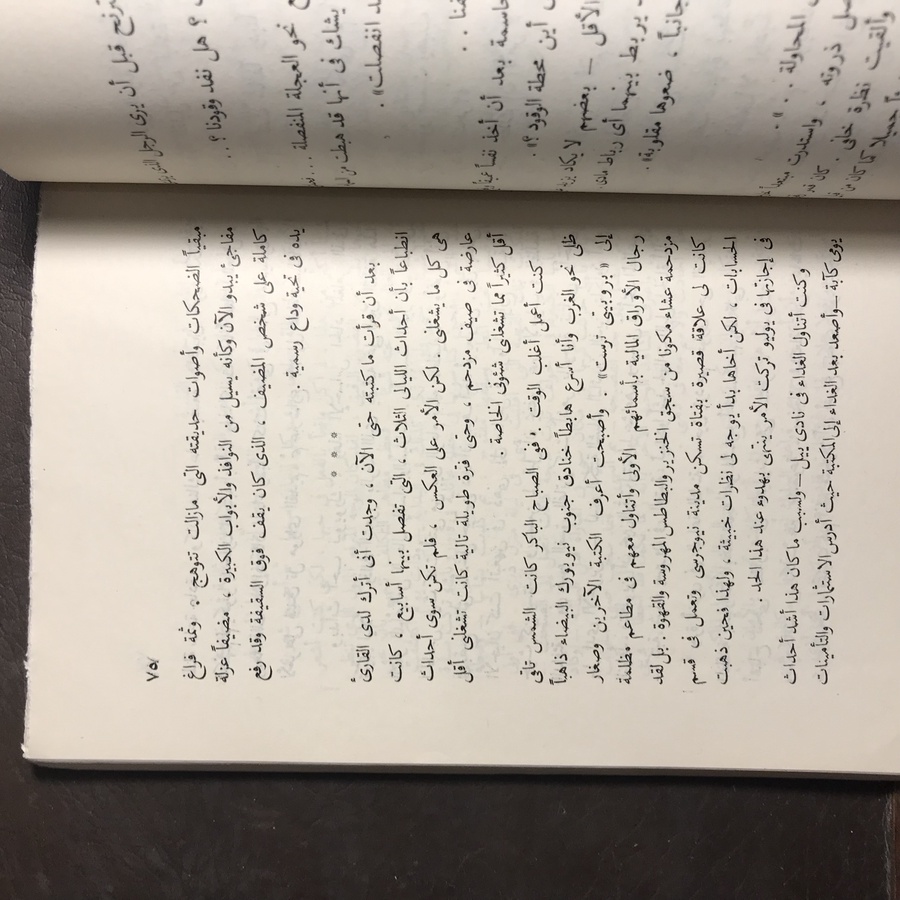 ٧٥
مبقياً الضحكات وأصوات حديقته التى مازالت تتوهج . وثمة فراغ
مفاجئ يبدو الآن وكأنه يسيل من النوافذ والأبواب الكبيرة ، مضيفاً عزلة
كاملة على شخص المضيف ، الذى كان يقف فوق السقيفة وقد رفع
يده فى تحية وداع رسمية .
بعد أن قرأت ما كتبته حتى الآن ، وجدت أنى أترك لدى القارئ
انطباعاً بأن أحداث الليالى الثلاث ، التى تفصل بينها أسابيع ، كانت
هى كل ما يشغلنى . لكن الأمر على العكس ، فلم تكن سوى أحداث
عارضة فى صيف مزدحم ، وحتى فترة طويلة تالية كانت تشغلنى أقل
أقل كثيراً مما تشغلنى شئونى الخاصة .
كنت أعمل أغلب الوقت . ففى الصباح الباكر كانت الشمس تلقى
ظلى نحو الغرب وأنا أسرع هابطاً خنادق جنوب نيويورك البيضاء ذاهباً
إلى « بروبيتى ترست» . وأصبحت أعرف الكتبة الآخرين وصغار
رجال الأوراق المالية بأسمائهم الأولى وأتناول معهم فى مطاعم مظلمة
مزدحمة عشاء مكونا من سجق الخنزير والبطاطس المهروسة والقهوة . بل لقد
كانت لى علاقة قصيرة بفتاة تسكن مدينة نيوجرسى وتعمل فى قسم
الحسابات ، لكن أخاها بدأ يوجه لى نظرات خبيثة ، ولهذا فحين ذهبت
فى إجازتها فى يوليو تركت الأمر ينتهى بهدوء عند هذا الحد .
وكنت أتناول الغداء فى نادى ييل – ولسبب ما كان هذا أشد أحداث
يومى كآبة – وأصعد بعد الغداء إلى المكتبة حيث أدرس الاستثمارات والتأمينات
قبل أن يرى الرجل
؟ هل نفد وقودنا ؟ ..
نحو العجلة المنفصلة ...
يشك فى أنها قد هبطت من
انفصلت» .
بعد أن أخذ نفساً
أين محطة الوقود ؟» .
الأقل – بعضهم لا يكاد
يربط بينهما أى رباط
جانباً ، ضعوها مقلوبة» .
المحاولة ... » .
ذروته ، واستدرت
وألقيت نظرة خلفى .